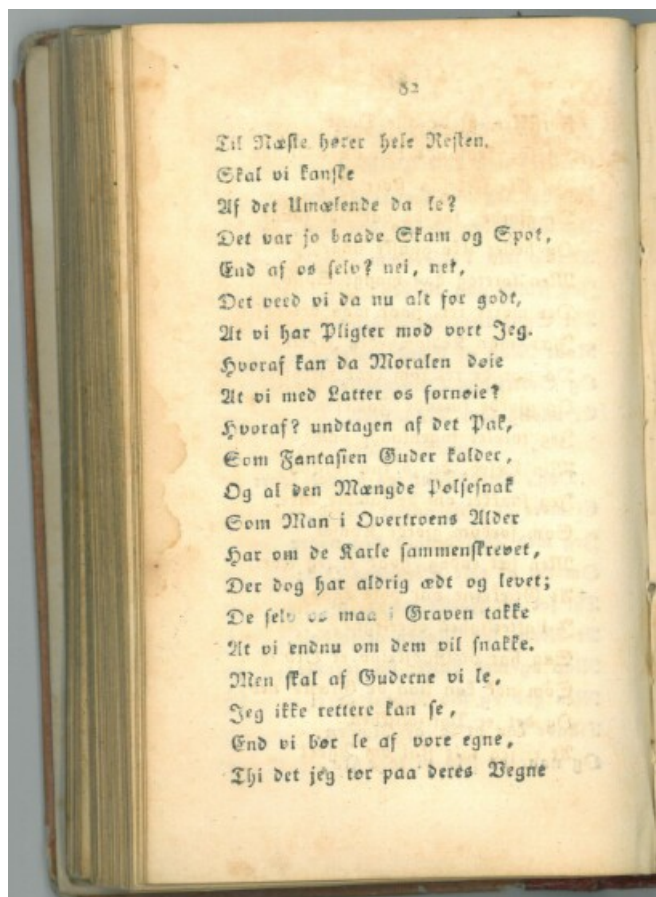 82
Til Næste hører hele Resten.
Skal vi kanske
Af det Umælende da le?
Det var jo baade Skam og Spot,
End af os selv? nei, nei,
Det veed vi da nu alt for godt,
At vi har Pligter mod vort Jeg.
Hvoraf kan da Moralen døie
At vi med Latter os fornøie?
Hvoraf? undtagen af det Pak,
Som Fantasien Guder kalder,
Og al den Mængde Pølsesnak
Som Man i Overtroens Alder
Har om de Karle sammenskrevet,
Der dog har aldrig ædt og levet;
De selv os maa i Graven takke
At vi endnu om dem vil snakke.
Men skal af Guderne vi le,
Jeg ikke rettere kan se,
End vi bør le af vore egne,
Thi det jeg tør paa deres Vegne